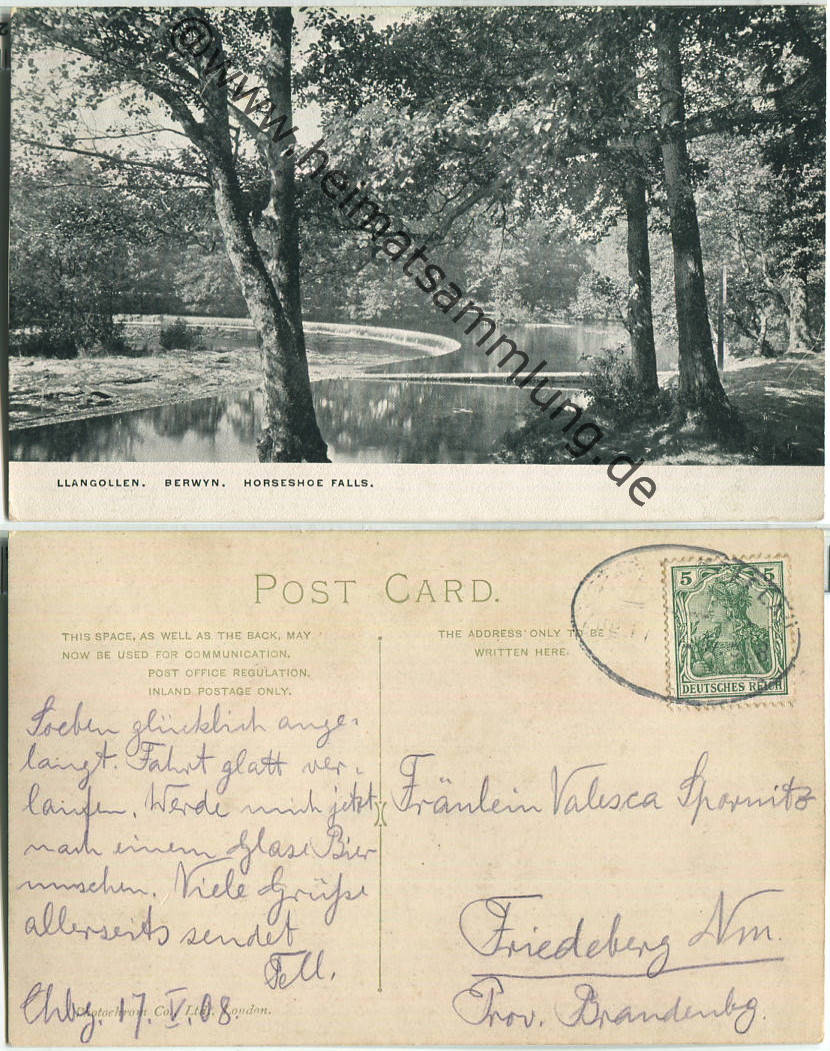 @www.heimatsammlung.de
LLANGOLLEN. BERWYN. HORSESHOE FALLS.
POST CARD.
THIS SPACE, AS WELL AS THE BACK, MAY
NOW BE USED FOR COMMUNICATION.
POST OFFICE REGULATION.
INLAND POSTAGE ONLY.
THE ADDRESS ONLY TO BE
WRITTEN HERE.
5 5
DEUTSCHES REICH
Soeben glücklich ange-
langt. Fahrt glatt ver-
laufen. Werde mich jetzt
nach einem Glase Bier
umsehen. Viele Grüße
allerseits sendet
Tell.
Chbg. 17. V. 08.
Photochrom Co., Ltd., London.
Fräulein Valesca Spornitz
Friedeberg Nm.
Prov. Brandenbg.